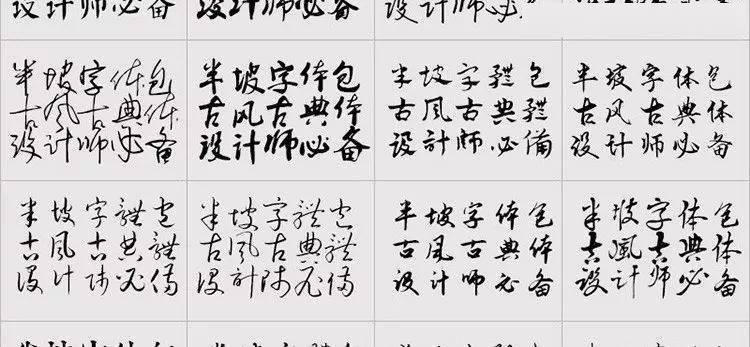 设计师必备
设计师必备
设计师必
半坡字体包
古风古典体
设计师必备
半坡字体包
古风古典体
设计师必备
半坡字體包
古風古典體
设計師必備
半坡字体包
古风古典体
设计师必备
半坡字體包
古風古典體
设计师必備
半坡字體包
古风古典體
设計师必備
半坡字体包
古风古典体
设计师必备
半坡字体包
古風古典体
设计師必备